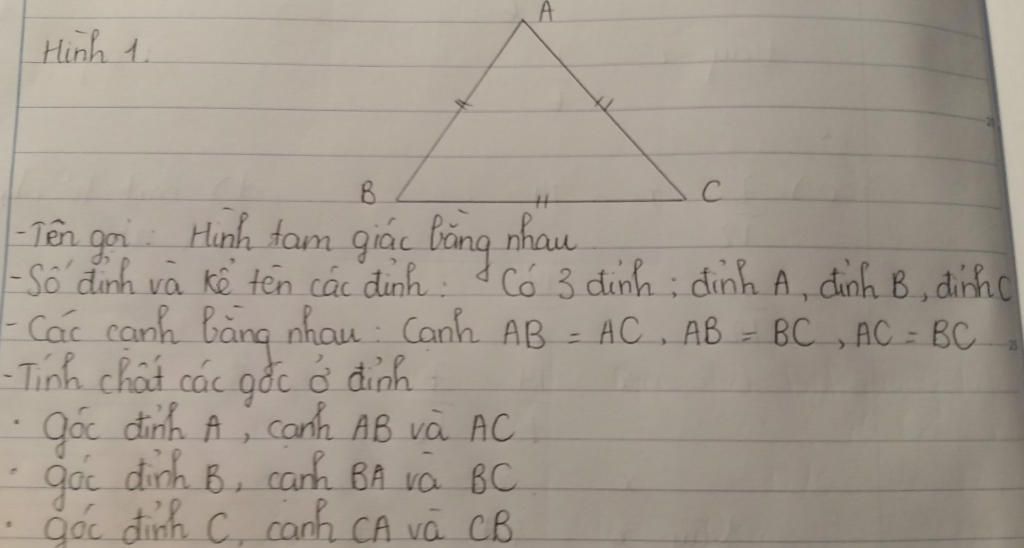 A
Hình 1.
B
C
-Tên gọi : Hình tam giác bằng nhau
-Số đỉnh và kể tên các đỉnh : Có 3 đỉnh ; đỉnh A, đỉnh B, đỉnh C
- Các cạnh bằng nhau : Cạnh AB = AC, AB = BC, AC = BC
-Tính chất các góc ở đỉnh :
· góc đỉnh A, cạnh AB và AC
· góc đỉnh B, cạnh BA và BC
· góc đỉnh C, cạnh CA và CB